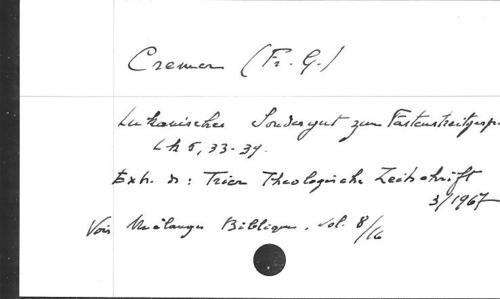 Cremer (Fr. G.)
Lukanisches Sondergut zum Fastenstreitgesp.
Lk 5, 33-39.
Extr. de : Trier Theologische Zeitschrift
3/1967
Voir Mélanges Bibliques, vol. 8/16